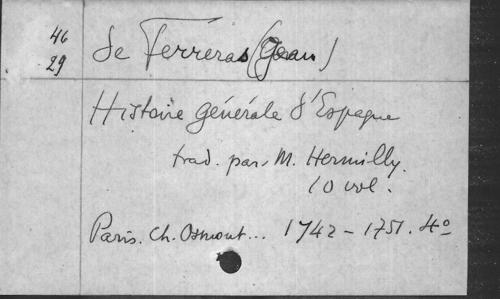 46
29
de Ferreras (Jean)
Histoire générale d'Espagne
trad. par M. Hermilly.
10 vol.
Paris. Ch. Osmont... 1742 - 1751. 4º